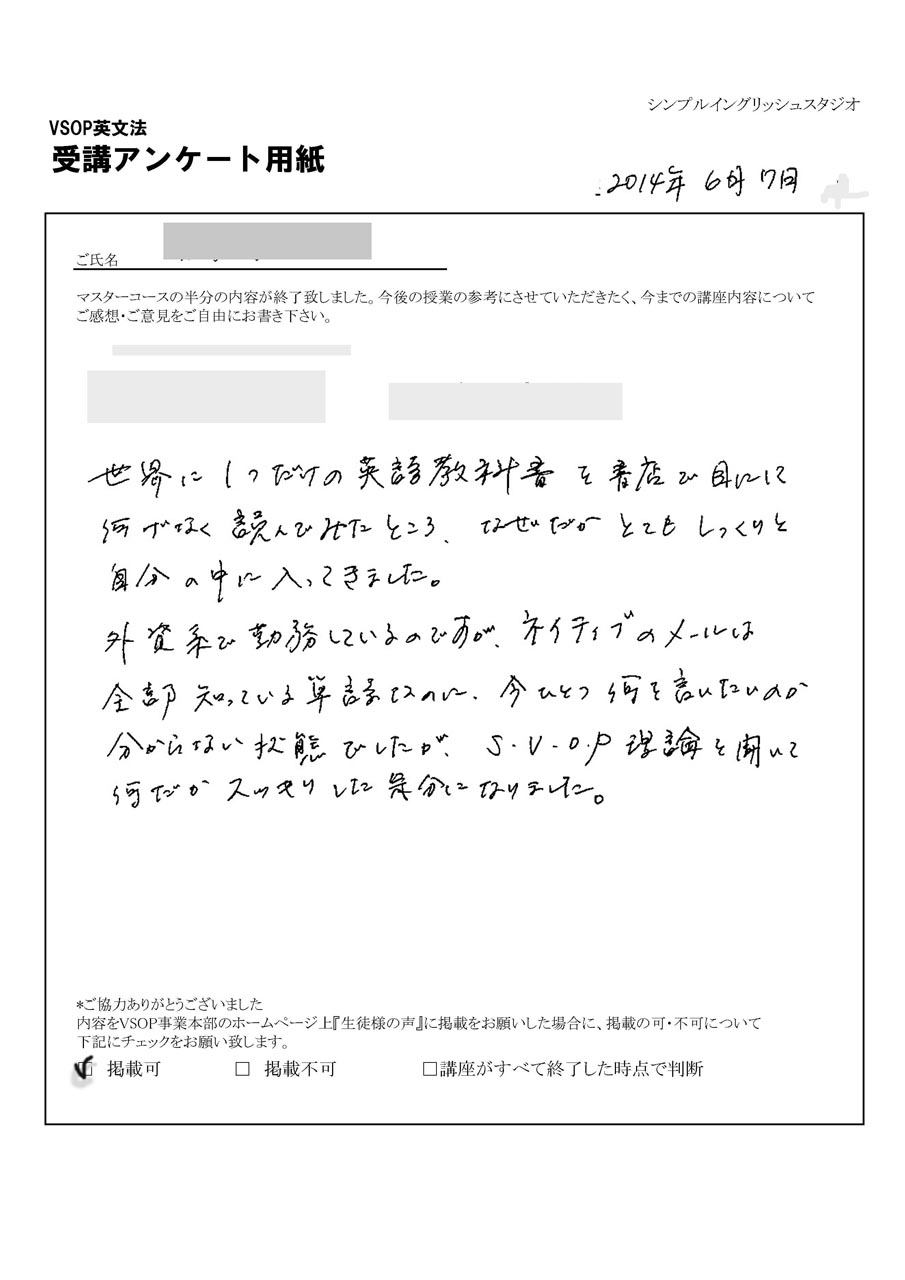 シンプルイングリッシュスタジオ
VSOP英文法
受講アンケート用紙
2014年 6月 7日
ご氏名
マスターコースの半分の内容が終了致しました。今後の授業の参考にさせていただきたく、今までの講座内容について
ご感想・ご意見をご自由にお書き下さい。
世界に1つだけの英語教科書を書店で目にして
何げなく読んでみたところ、なぜだかとてもしっくりと
自分の中に入ってきました。
外資系で勤務しているのですが、ネイティブのメールは
全部知っている単語なのに、今ひとつ何を言いたいのか
分からない状態でしたが、S・V・O・P理論を聞いて
何だかスッキリした気分になりました。
*ご協力ありがとうございました
内容をVSOP事業本部のホームページ上『生徒様の声』に掲載をお願いした場合に、掲載の可・不可について
下記にチェックをお願い致します。
☑ 掲載可 □ 掲載不可 □講座がすべて終了した時点で判断